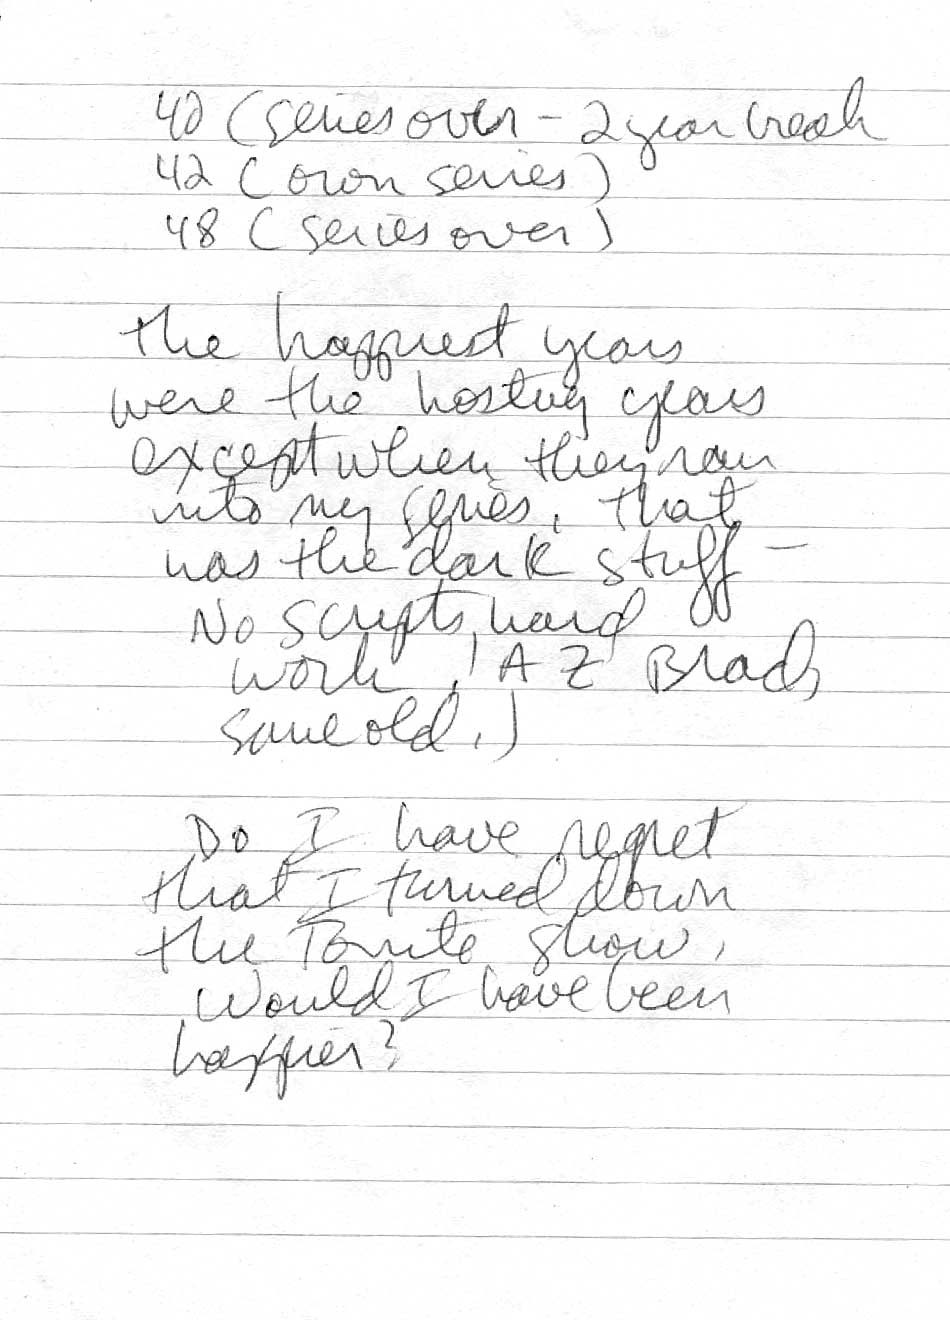 40 (series over - 2 year break
42 (own series)
48 (series over)
the happiest years
were the hosting years
except when they ran
into my series. that
was the dark stuff -
No scripts, hard
work. (AZ Brad,
same old.)
Do I have regret
that I turned down
the Tonite show,
Would I have been
happier?